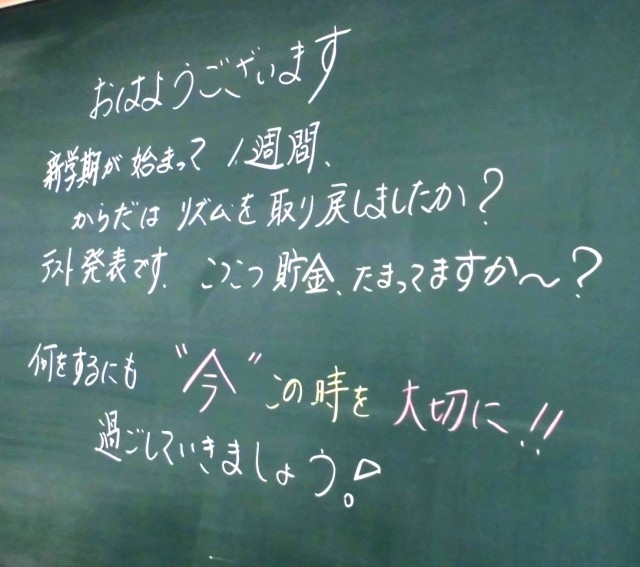 おはようございます
新学期が始まって1週間、
からだはリズムを取り戻しましたか?
テスト発表です、こつこつ貯金、たまってますか〜?
何をするにも"今"この時を大切に!!
過ごしていきましょう!